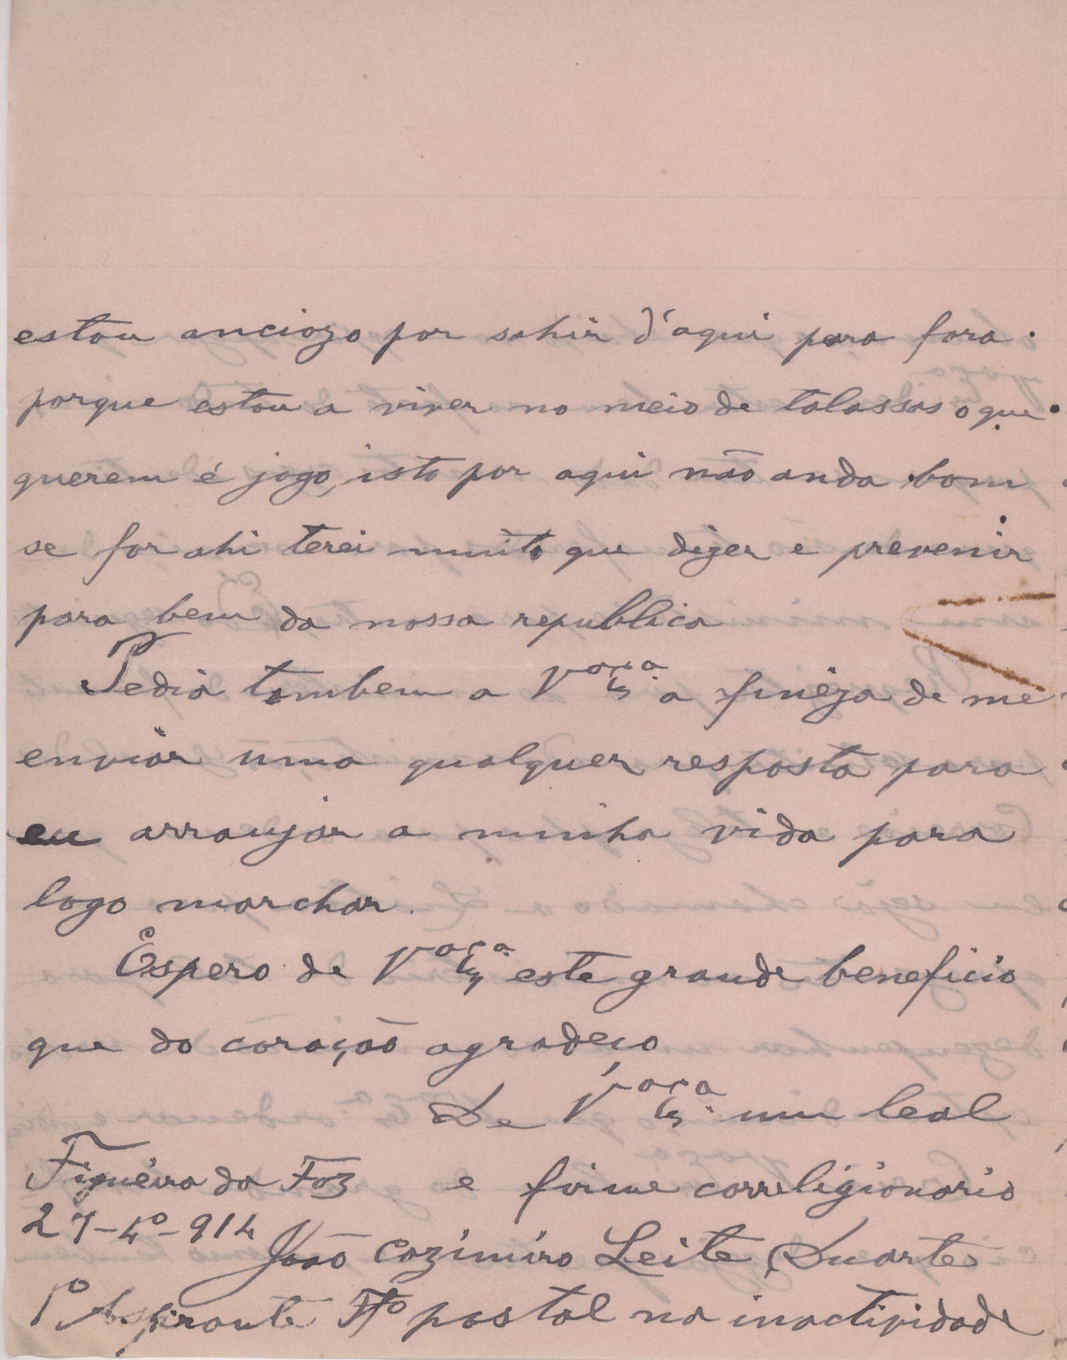 estou anciozo por sahir d'aqui para fora.
porque estou a viver no meio de talassas o que
querem é jogo, isto por aqui não anda bom
se for ahi terei muito que dizer e prevenir
para bem da nossa republica
Pedia tambem a Voça Ex.ª a finêza de me
enviar uma qualquer resposta para
eu arranjar a minha vida para
logo marchar.
Espero de Voça Ex.ª este grande beneficio
que do coração agradeço
De Voça Ex.ª um leal
Figueira da Foz e firme correligionario
27-4º-914
João Cazimiro Leite Duarte
1º Aspirante postal na inactividade